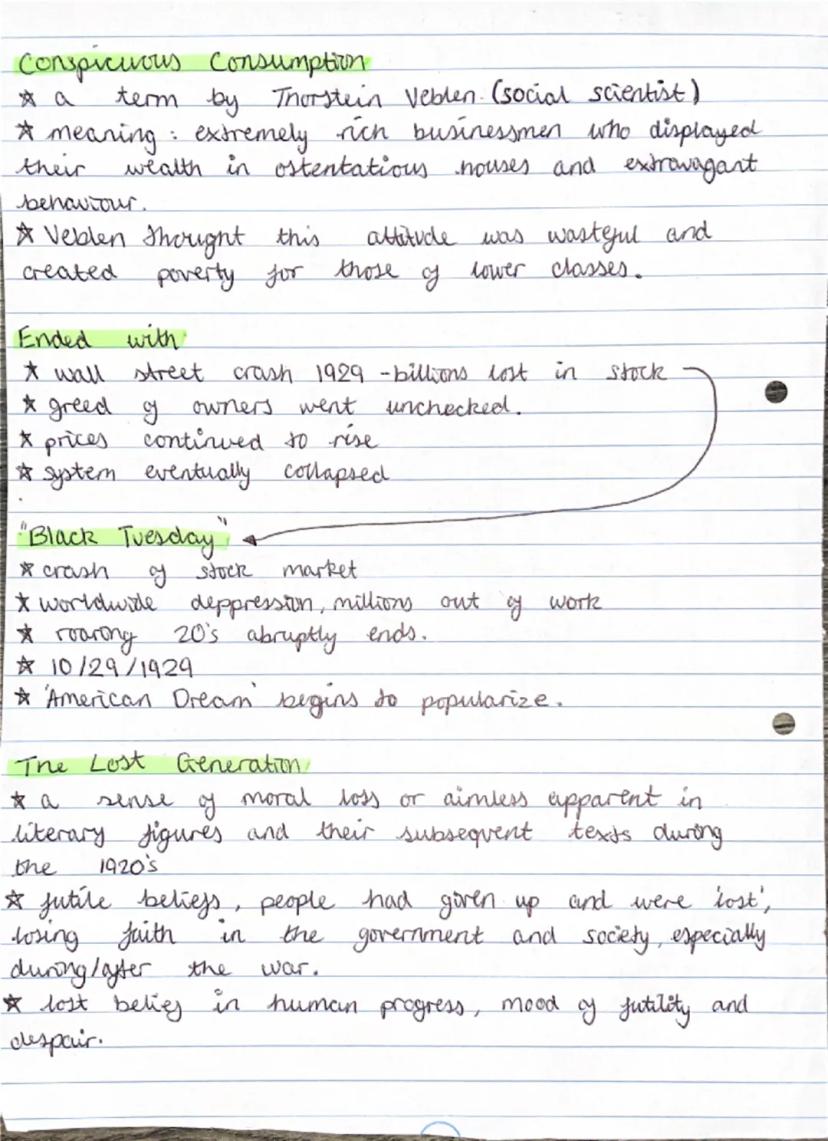 Conspicuous Consumption
☆ a term by Thorstein Veblen. (social scientist)
☆ meaning : extremely rich businessmen who displayed
their wealth in ostentatious houses and extravagant
behaviour.
☆ Veblen thought this attitude was wasteful and
created poverty for those of lower classes.
Ended with
☆ wall street crash 1929 - billions lost in stock
☆ greed of owners went unchecked.
☆ prices continued to rise
☆ system eventually collapsed
"Black Tuesday"
☆ crash of stock market
☆ worldwide deppression, millions out of work
☆ roaring 20's abruptly ends.
☆ 10/29/1929
☆ 'American Dream' begins to popularize.
The Lost Generation
☆ a sense of moral loss or aimless apparent in
literary figures and their subsequent texts during
the 1920's
☆ futile beliefs, people had given up and were 'lost',
losing faith in the government and society, especially
during/after the war.
☆ lost belief in human progress, mood of futility and
despair.